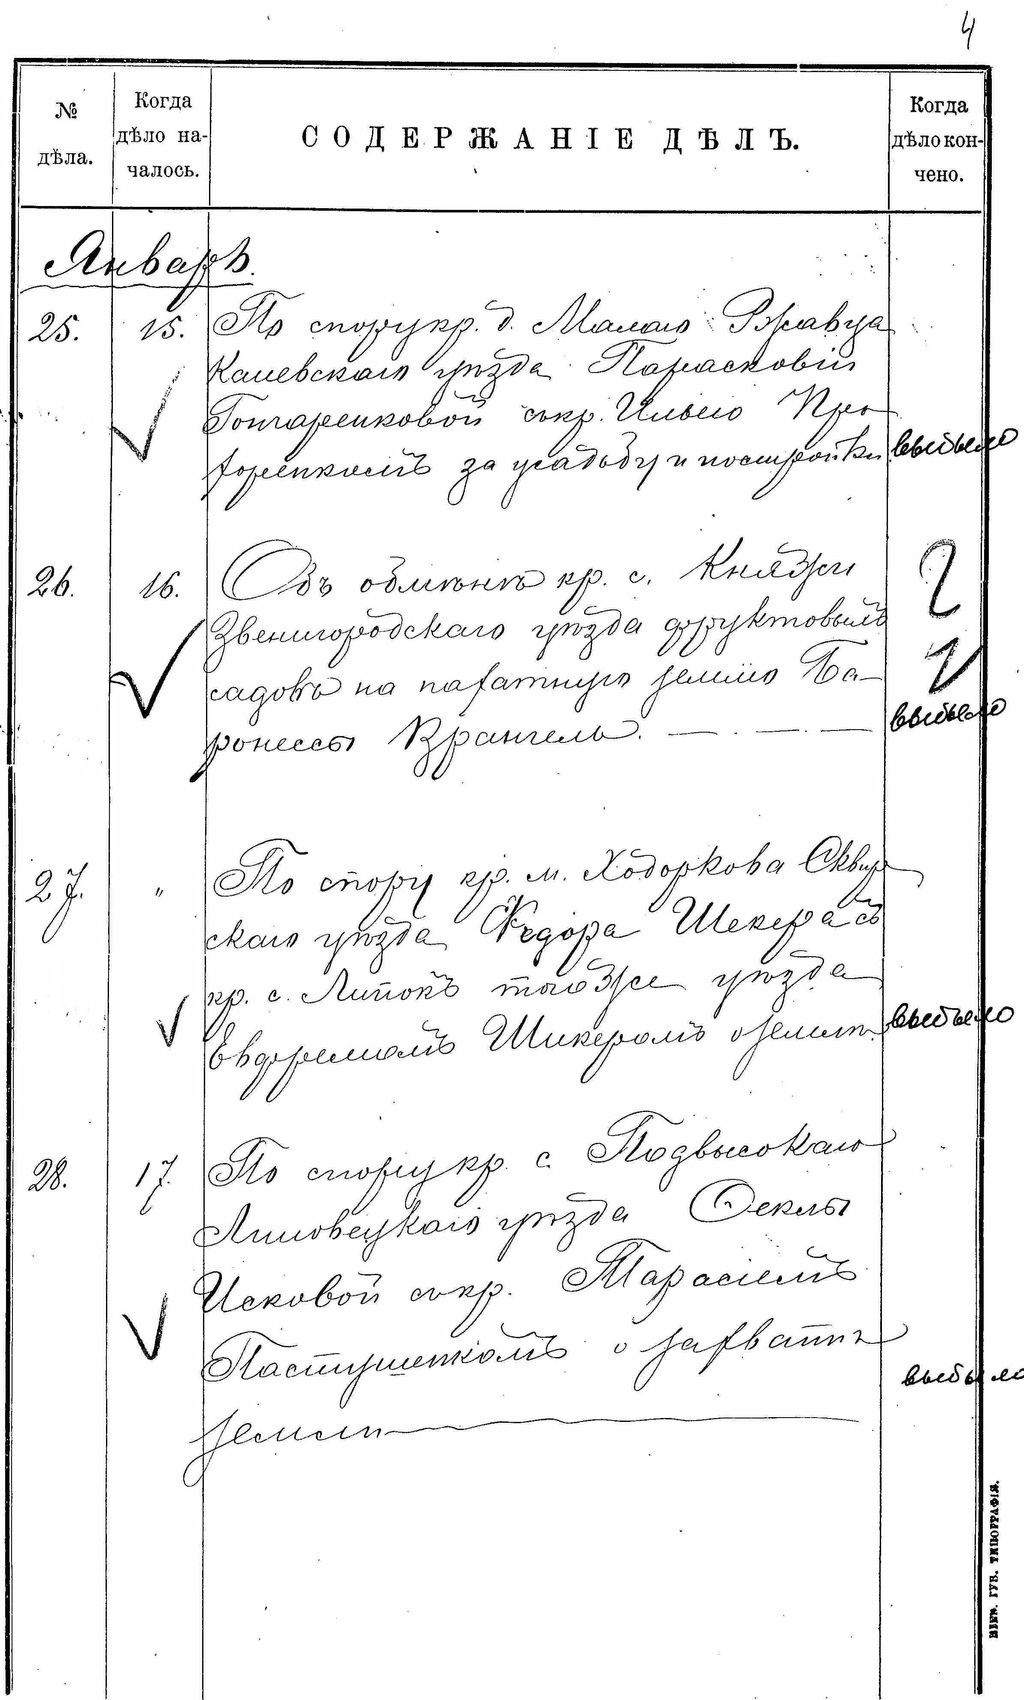 4
№ дѣла.
Когда дѣло началось.
СОДЕРЖАНІЕ ДѢЛЪ.
Когда дѣло кончено.
Январь.
25. 15. По спору кр. д. Малаго Ржавца
Каневскаго уѣзда Парасковіи
Гончаренковой съ кр. Ильею Про
форенкомъ за усадьбу и постройки выбыло
26. 16. Объ обмѣнѣ кр. с. Княжи
Звенигородскаго уѣзда фруктовыхъ
садовъ на пахатную землю Ба-
ронессы Врангель. выбыло
27. " По спору кр. м. Ходоркова Сквир
скаго уѣзда Ѳедора Шекера съ
кр. с. Липокъ того же уѣзда
Евфремомъ Шикеромъ о землѣ. выбыло
28. 17. По спору кр. с. Подвысокаго
Липовецкаго уѣзда Ѳеклы
Исковой съ кр. Тарасіемъ
Пастушенкомъ о захватѣ
земли выбыло
КІЕВ. ГУБ. ТИПОГРАФІЯ.